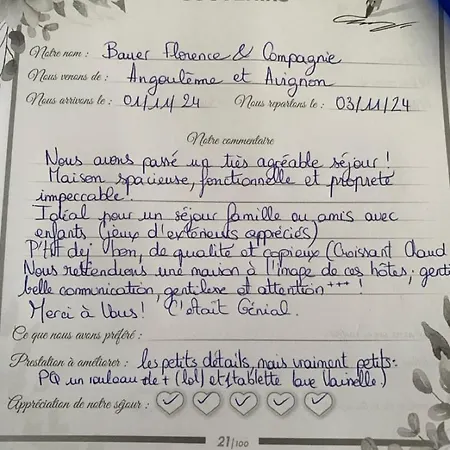 Notre nom : Bauer Florence & Compagnie
Nous venons de : Angoulème et Avignon
Nous arrivons le : 01/11/24 Nous repartons le : 03/11/24
Notre commentaire
Nous avons passé un très agréable séjour !
Maison spacieuse, fonctionnelle et propreté
impeccable !
Idéal pour un séjour famille ou amis avec
enfants (jeux d'extérieurs appréciés)
P'tit dej bon, de qualité et copieux (Croissant Chaud
Nous rettendiens une maison à l'image de ces hôtes ; genti
belle communication, gentilesse et attention +++ !
Merci à Vous ! C'était Génial.
Ce que nous avons préféré :
Prestation à améliorer : les petits détails, mais vraiment petits :
PQ un rouleau de + (lol) et 1 tablette lave Vaisselle.)
Appréciation de notre séjour :
21/100